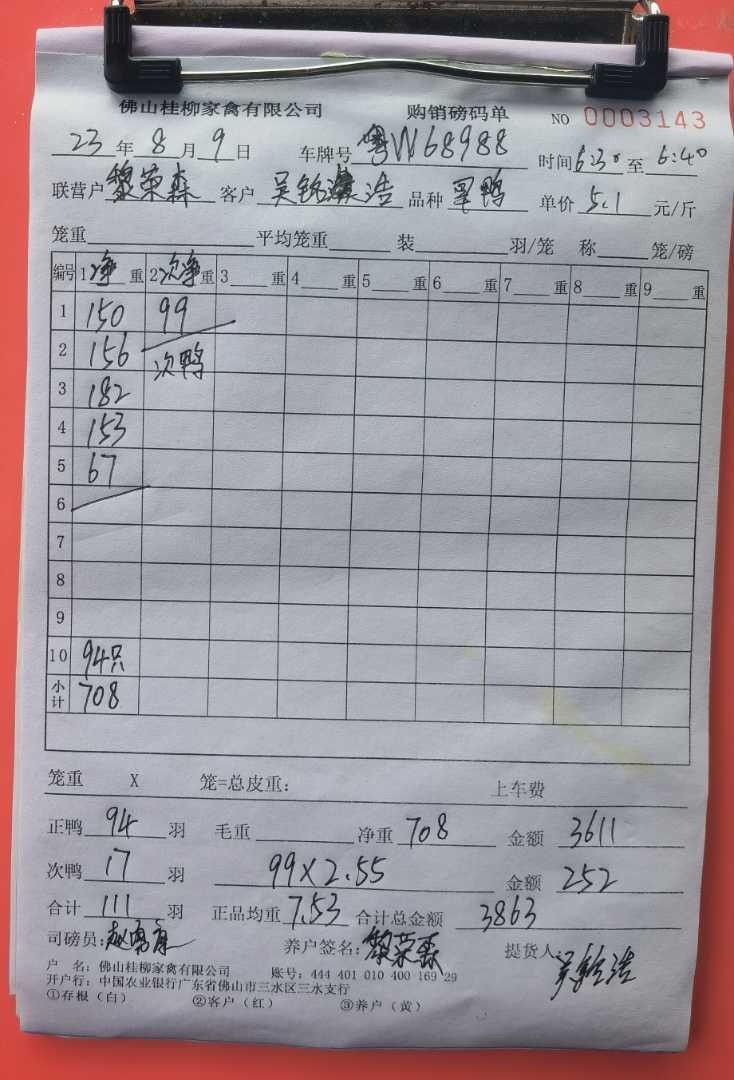 佛山桂柳家禽有限公司 购销磅码单 NO 0003143
23年8月9日 车牌号粤W68988 时间6:30至6:40
联营户黎荣森 客户吴 浩 品种 鸭 单价5.1元/斤
笼重 平均笼重 装 羽/笼 称 笼/磅
编号 1净重 2次净重 3 重 4 重 5 重 6 重 7 重 8 重 9 重
1 150 99
2 156 次鸭
3 182
4 153
5 67
6
7
8
9
10 94只
小计 708
笼重 X 笼=总皮重: 上车费
正鸭94羽 毛重 净重708 金额3611
次鸭17羽 99X2.55 金额252
合计111羽 正品均重7.53 合计总金额3863
司磅员: 养户签名:黎荣森 提货人 吴 浩
户 名: 佛山桂柳家禽有限公司 账号: 444 401 010 400 169 29
开户行: 中国农业银行广东省佛山市三水区三水支行
①存根(白) ②客户(红) ③养户(黄)